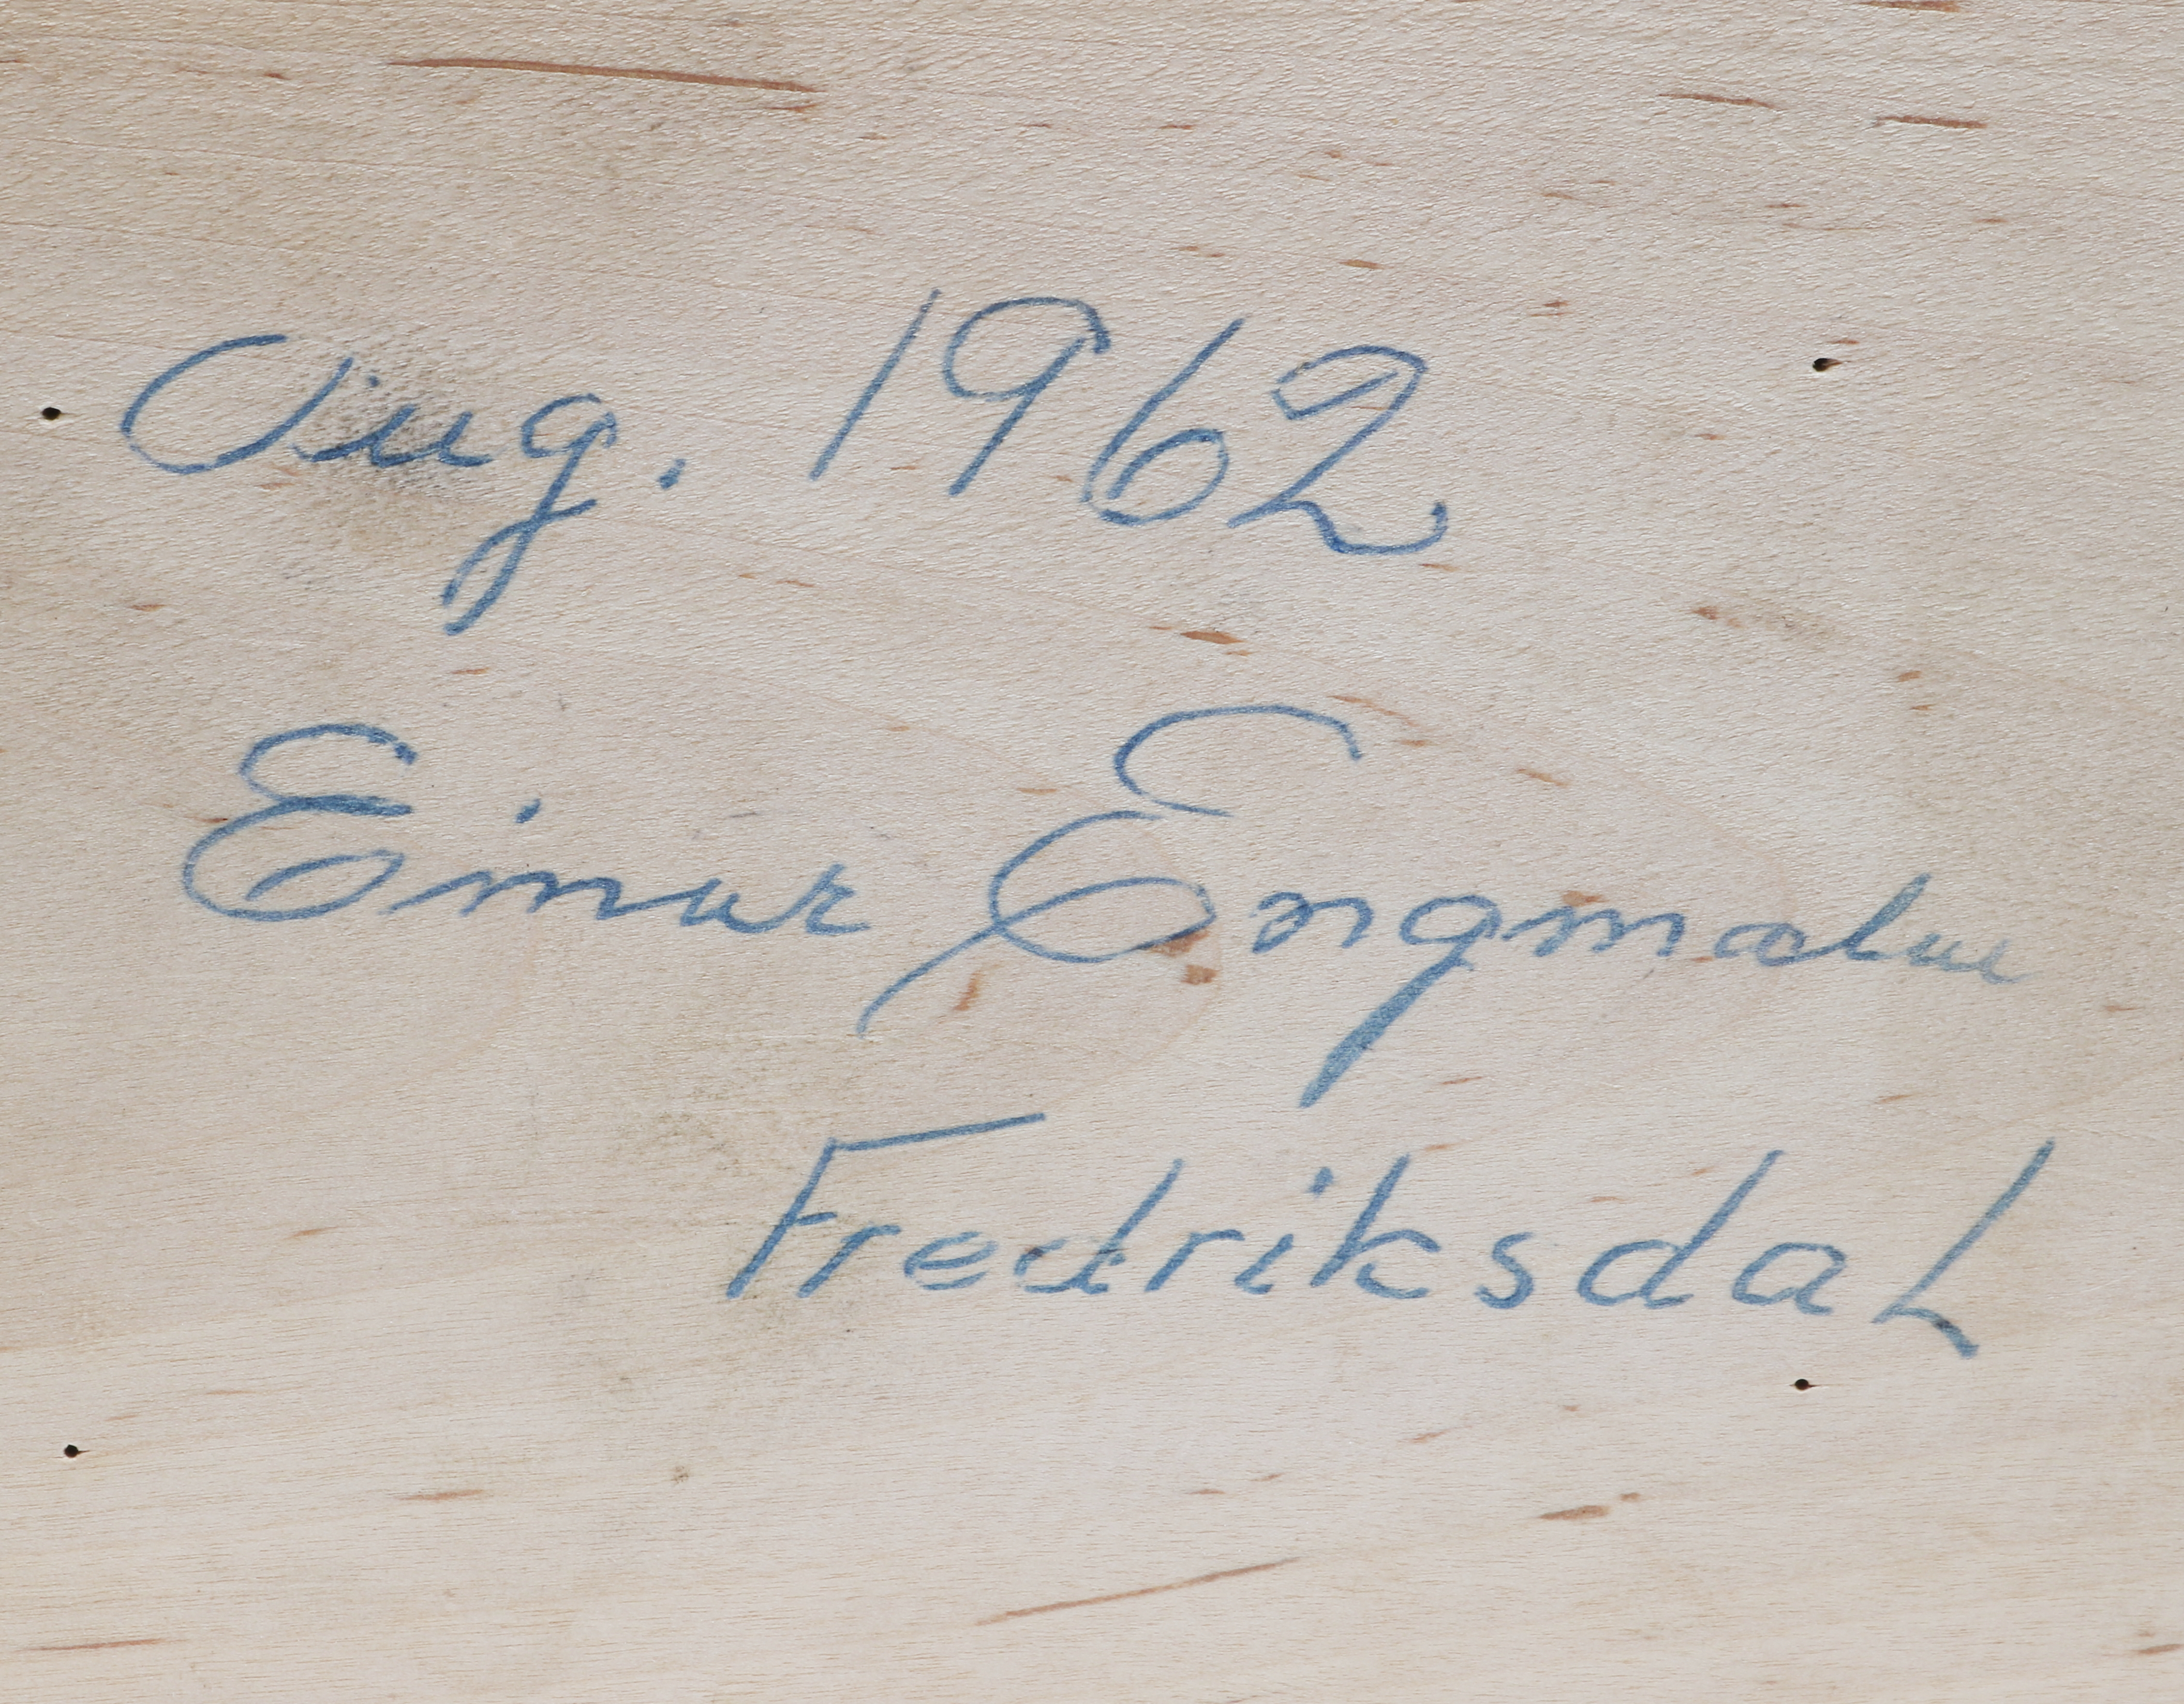 Aug. 1962
Einar Engmalm
Fredriksdal